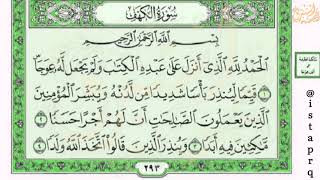 سُورَةُ الكَهْفِ
بِسْمِ اللَّهِ الرَّحْمَٰنِ الرَّحِيمِ
الْحَمْدُ لِلَّهِ الَّذِي أَنْزَلَ عَلَىٰ عَبْدِهِ الْكِتَابَ وَلَمْ يَجْعَلْ لَهُ عِوَجًا
١ قَيِّمًا لِيُنْذِرَ بَأْسًا شَدِيدًا مِنْ لَدُنْهُ وَيُبَشِّرَ الْمُؤْمِنِينَ
الَّذِينَ يَعْمَلُونَ الصَّالِحَاتِ أَنَّ لَهُمْ أَجْرًا حَسَنًا ٢
مَاكِثِينَ فِيهِ أَبَدًا ٣ وَيُنْذِرَ الَّذِينَ قَالُوا اتَّخَذَ اللَّهُ وَلَدًا ٤
٢٩٣
@istaprq